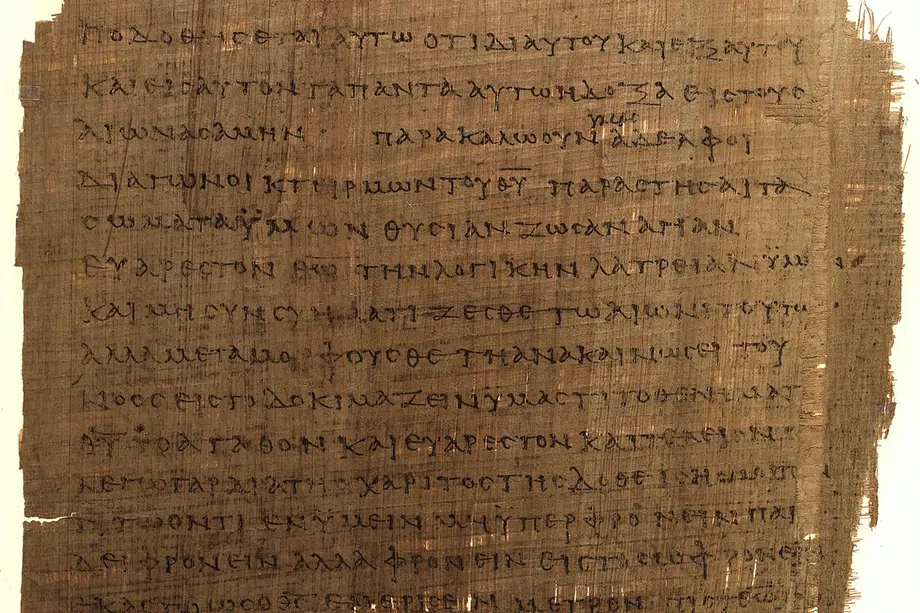 ΠΟΔΟΘΗϹΕΤΑΙ ΑΥΤΩ ΟΤΙ ΔΙ ΑΥΤΟΥ ΚΑΙ ΕΞ ΑΥΤΟΥ
ΚΑΙ ΕΙϹ ΑΥΤΟΝ ΤΑ ΠΑΝΤΑ ΑΥΤΩ Η ΔΟΞΑ ΕΙϹ ΤΟΥϹ
ΑΙΩΝΑϹ ΑΜΗΝ ΠΑΡΑΚΑΛΩ ΟΥΝ ΑΔΕΛΦΟΙ
ΔΙΑ ΤΩΝ ΟΙΚΤΕΙΡΜΩΝ ΤΟΥ Θ̅Υ̅ ΠΑΡΑϹΤΗϹΑΙ ΤΑ
ϹΩΜΑΤΑ ΫΜΩΝ ΘΥϹΙΑΝ ΖΩϹΑΝ ΑΓΙΑΝ
ΕΥΑΡΕϹΤΟΝ Θ̅Ω̅ ΤΗΝ ΛΟΓΙΚΗΝ ΛΑΤΡΕΙΑΝ ΫΜΩ
ΚΑΙ ΜΗ ϹΥΝϹΧΗΜΑΤΙΖΕϹΘΕ ΤΩ ΑΙΩΝΙ ΤΟΥΤΩ
ΑΛΛΑ ΜΕΤΑΜΟΡΦΟΥϹΘΕ ΤΗ ΑΝΑΚΑΙΝΩϹΕΙ ΤΟΥ
ΝΟΟϹ ΕΙϹ ΤΟ ΔΟΚΙΜΑΖΕΙΝ ΫΜΑϹ ΤΙ ΤΟ
Θ̅Υ̅ ΤΟ ΑΓΑΘΟΝ ΚΑΙ ΕΥΑΡΕϹΤΟΝ ΚΑΙ ΤΕΛΕΙΟΝ
ΛΕΓΩ ΓΑΡ ΔΙΑ ΤΗϹ ΧΑΡΙΤΟϹ ΤΗϹ
ΟΝΤΙ ΕΝ ΫΜΕΙΝ ΜΗ ΫΠΕΡΦΡΟΝΕΙΝ ΠΑΡ
ΔΕΙ ΦΡΟΝΕΙΝ ΑΛΛΑ ΦΡΟΝΕΙΝ ΕΙϹ ΤΟ ϹΩΦΡΟΝΕΙΝ
Θ̅Ϲ̅ ΕΜΕΡΙϹΕΝ ΜΕΤΡΟΝ